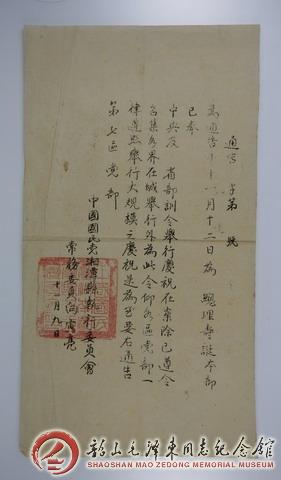 通告 字第 號
為通告事十一月十二日為 總理壽誕本部
已奉
中央及 省部訓令舉行慶祝在案除已遵令
召集各界在城舉行外為此令仰各區党部一
律遵照舉行大規模之慶祝是為至要右通告
第七區党部
中國國民党湘潭縣執行委員會
常務委員向
十一月九日
韶山毛澤東同志紀念館
SHAOSHAN MAO ZEDONG MEMORIAL MUSEUM